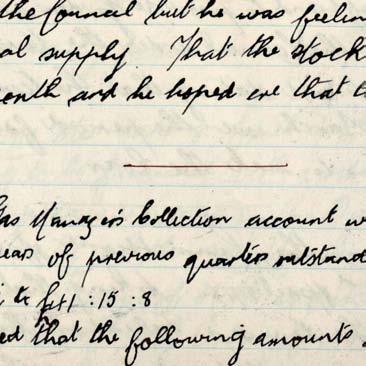 the Council but he was feelin
al supply. That the stock
onth and he hoped ere that t
Gas Manager's Collection account w
ears of previous quarters outstand
to £41 : 15 : 8
ed that the following amounts